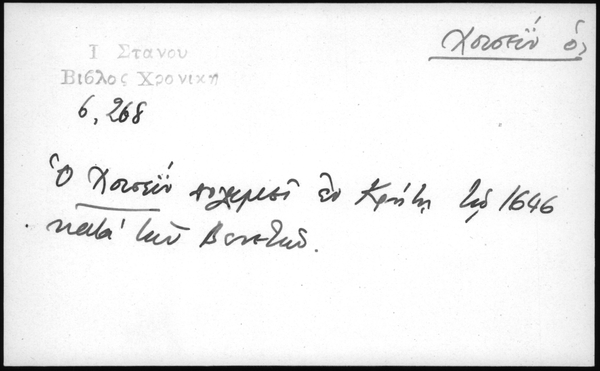 Χουσεΐν ὁ,
Ι Στανου
Βιβλος Χρονικη
6, 268
Ὁ Χουσεΐν πολεμεῖ ἐν Κρήτῃ τῷ 1646
κατὰ τῶν Βενετῶν.